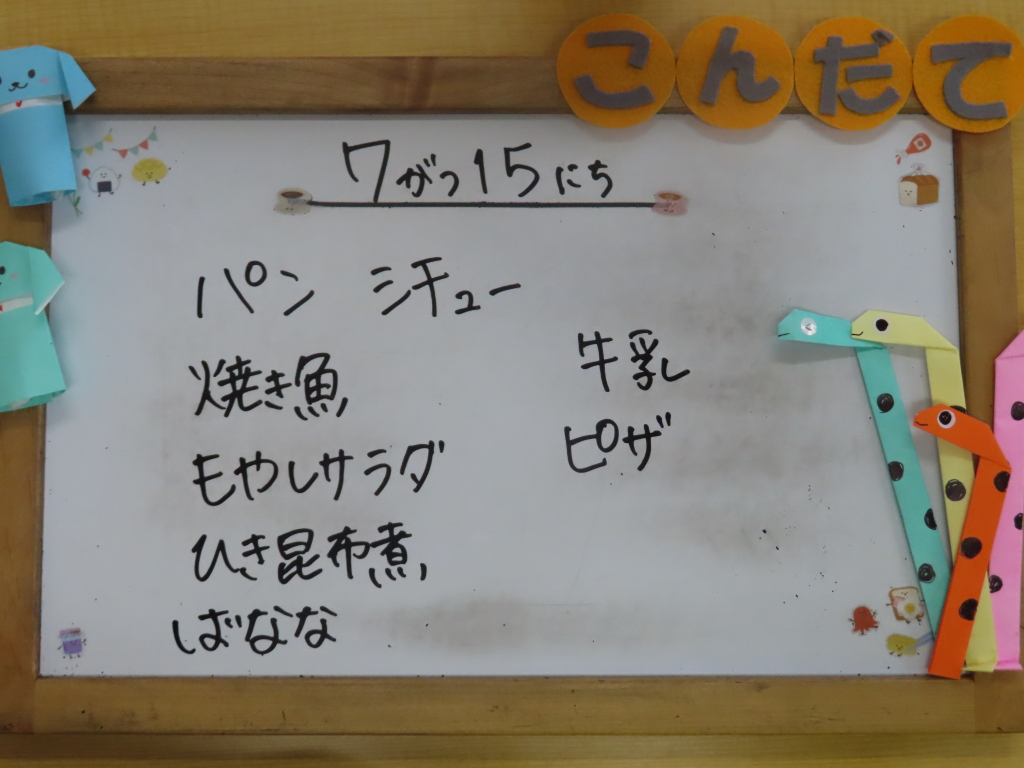 こんだて
7がつ15にち
パン シチュー
焼き魚
もやしサラダ
ひき昆布煮
ばなな
牛乳
ピザ